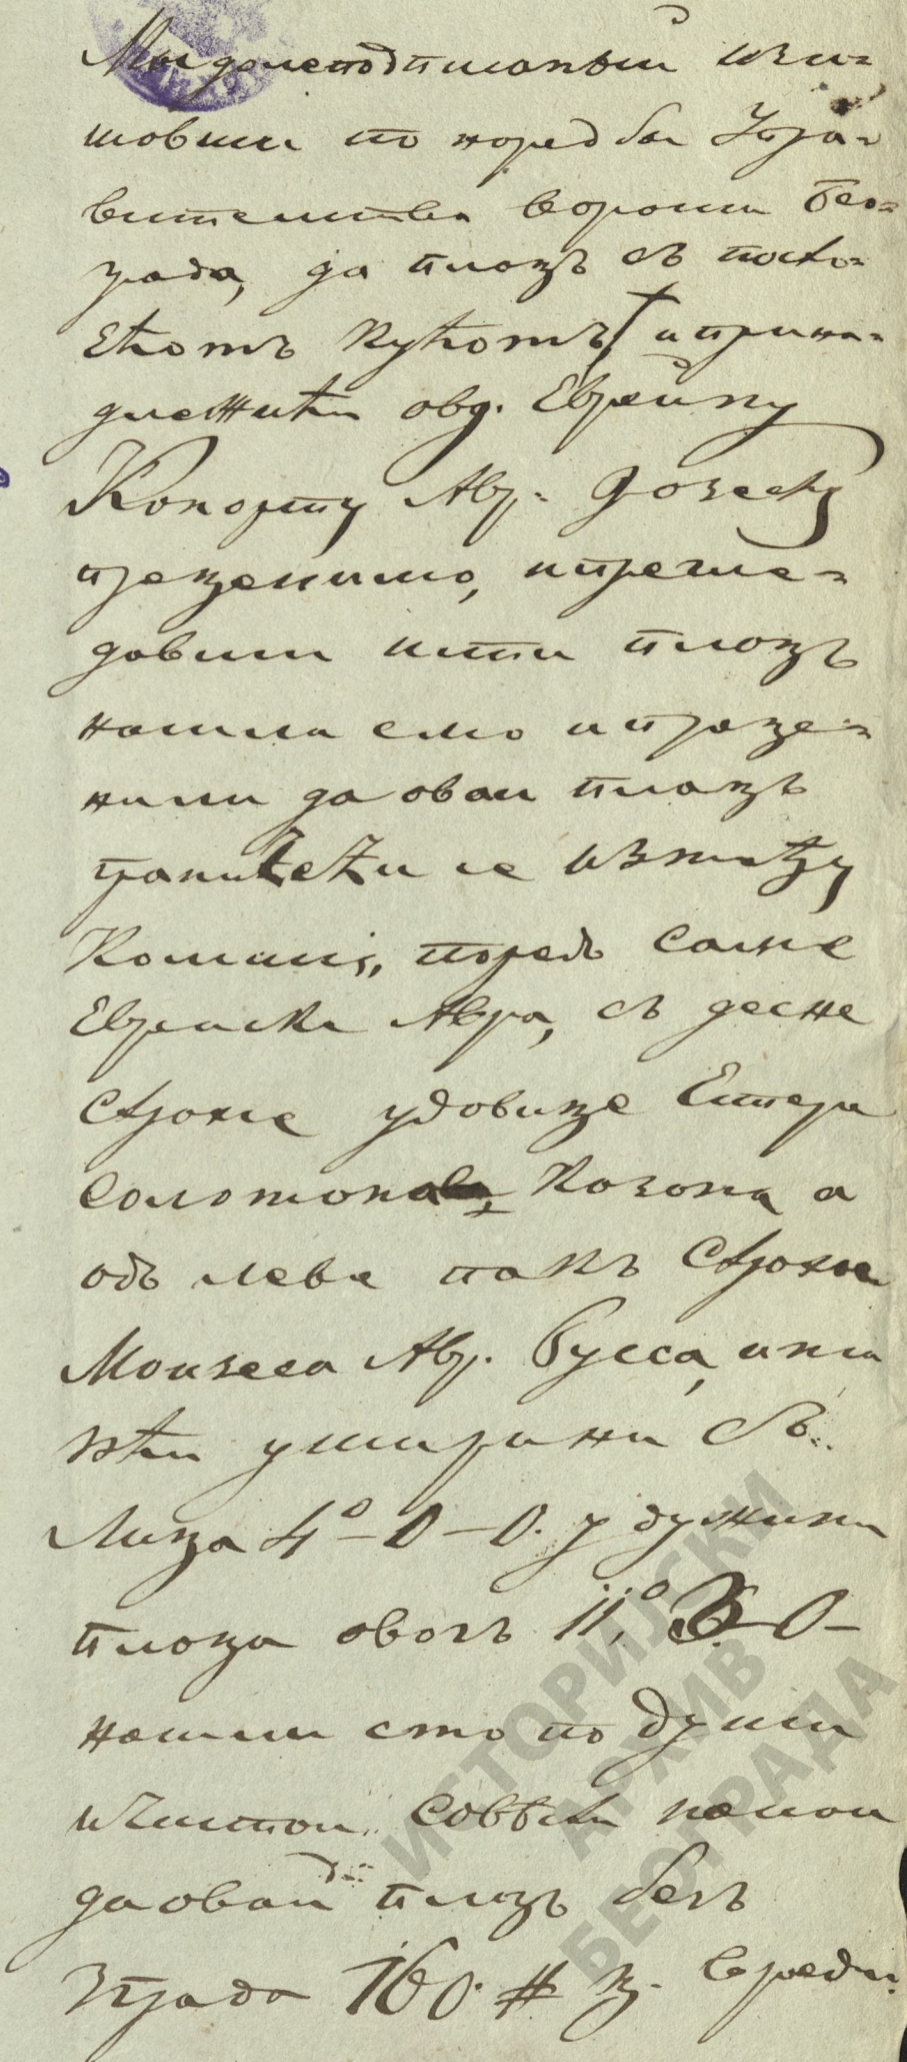 Мы долеподписаный изи-
шовши по наредби Упра-
вителства вароши Бео-
града, да плацъ съ посто-
ећомъ кућомъ, и прина-
длежићи овд. Евреину
Конорту Авр. Дозеску
преценимо, и прегле-
давши исти плацъ
нашли смо и проце-
нили да оваи плацъ
граничећи се између
Комшія, поредъ саме
Евреиске Авра, съ десне
стране удовице Ештера
Соломона Козона а
одъ леве пакъ стране
Моизеса Авр. Русса, има
ћи у ширини съ
Лица 4° – 0 – 0. у дужини
плаца овогъ 11°, 3 – 0 –
нашли смо по души
и чистой совѣсти нашой
да овай плацъ безъ
зграда 160. # ц. вреди.
ИСТОРИЈСКИ
АРХИВ
БЕОГРАДА